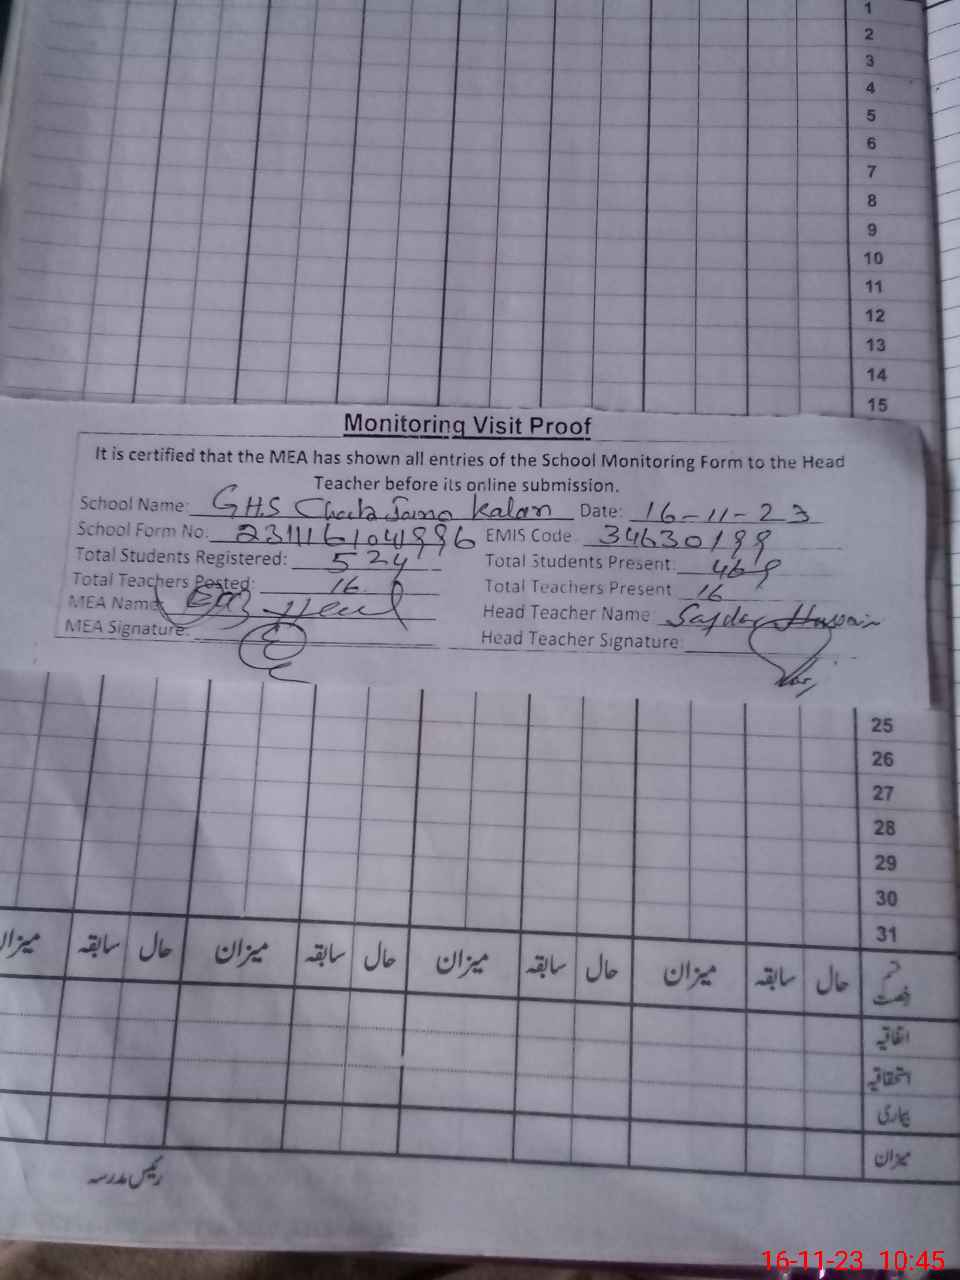 1
2
3
4
5
6
7
8
9
10
11
12
13
14
15
Monitoring Visit Proof
It is certified that the MEA has shown all entries of the School Monitoring Form to the Head
Teacher before its online submission.
School Name: G.H.S Kalan Date: 16-11-23
School Form No: EMIS Code 34630199
Total Students Registered: 524 Total Students Present: 469
Total Teachers Posted: 16 Total Teachers Present 16
MEA Name: Head Teacher Name: Safdar Hussain
MEA Signature: Head Teacher Signature:
25
26
27
28
29
30
31
قسم رخصت حال سابقہ میزان حال سابقہ میزان حال سابقہ میزان حال سابقہ میزان
اتفاقیہ
استحقاقیہ
بیماری
میزان
رئیس مدرسہ
16-11-23 10:45